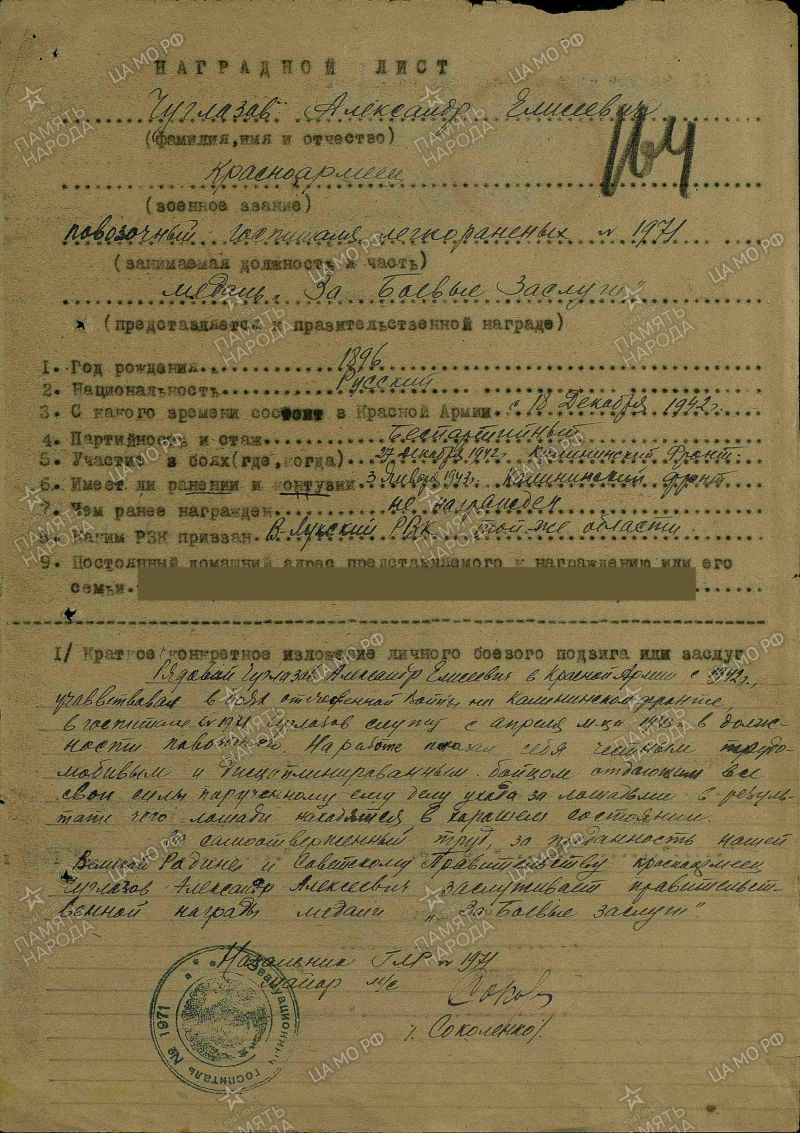 НАГРАДНОЙ ЛИСТ
164
Чуглазов Александр Елисеевич
(фамилия,имя и отчество)
Красноармеец
(военное звание)
повозочный госпиталя легкораненых № 1971
(занимаемая должность и часть)
медаль „За Боевые Заслуги"
(представляется к правительственной награде)
1. Год рождения 1896
2. Национальность Русский
3. С какого времени состоит в Красной Армии с 18 Декабря 1942 г.
4. Партийность и стаж Беспартийный
5. Участие в боях(где,когда) 27 декабря 1942 г. Калининский Фронт.
6. Имеет ли ранении и контузии 3 Января 1942 г. Калининский фронт
7. Чем ранее награжден не награжден
8. Каким РВК призван В-Лукский РВК той-же области
9. Постоянный домашний адрес представляемого к награждению или его
семьи.
I/ Краткое конкретное изложение личного боевого подвига или заслуг
Рядовой Чуглазов Александр Елисеевич в Красной Армии с 1942 г.,
участвовал в боях отечественной Войны на Калининском фронте,
в госпитале № 1971 Чуглазов служит с апреля м-ца в долж-
ности повозочн. На работе показал себя честным трудо-
любивым и дисциплинированным бойцом отдающим все
свои силы порученному ему делу ухода за лошадьми в резуль-
тате чего лошади находятся в хорошем состоянии.
За самоотверженный труд, за преданность нашей
Великой Родине и Советскому Правительству красноармеец
Чуглазов Александр Алексеевич заслуживает правительст-
венной награды медали „За Боевые заслуги".
Начальник ГЛР № 1971
майор м/с
/. Соколенко/.
Эвакуационный госпиталь № 1971
ПАМЯТЬ НАРОДА
ЦА МО РФ